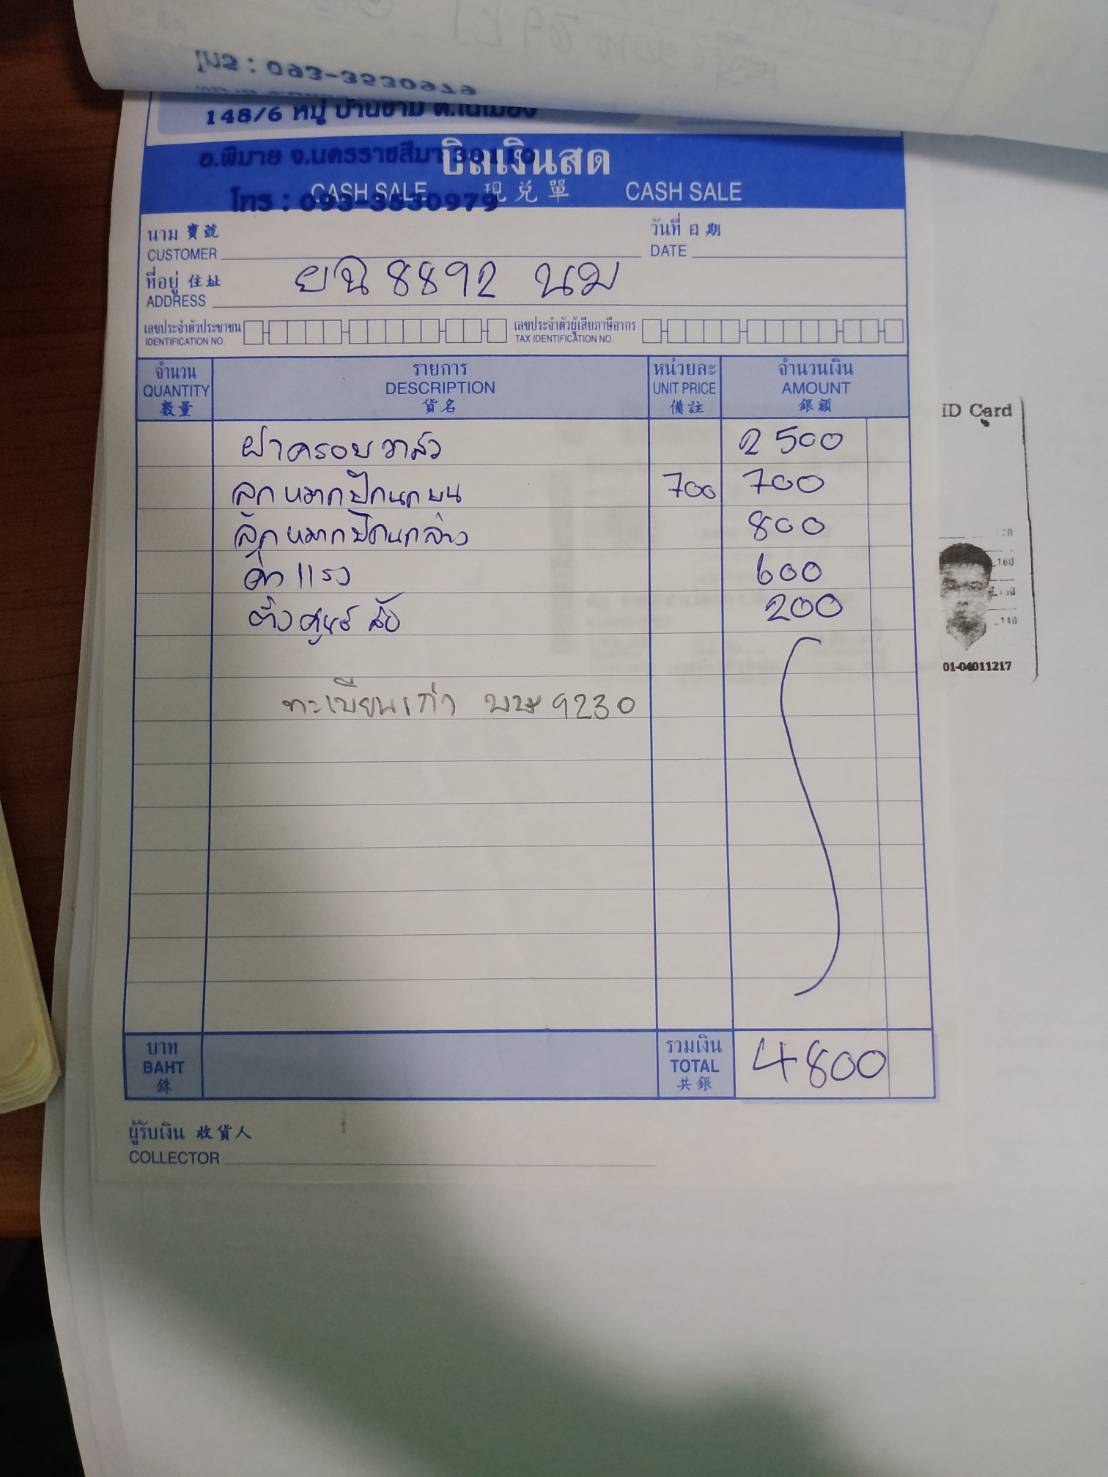 โทร : 093-3530979
148/6 หมู่ บ้านขาม ต.ในเมือง
อ.พิมาย จ.นครราชสีมา
โทร : 093-3530979
บิลเงินสด
CASH SALE 現兌單 CASH SALE
นาม 寶號
CUSTOMER
วันที่ 日期
DATE
ที่อยู่ 住址
ADDRESS
ยฉ 8892 นม
เลขประจำตัวประชาชน
IDENTIFICATION NO.
เลขประจำตัวผู้เสียภาษีอากร
TAX IDENTIFICATION NO.
จำนวน รายการ หน่วยละ จำนวนเงิน
QUANTITY DESCRIPTION UNIT PRICE AMOUNT
數量 貨名 備註 銀額
ฝาครอบวาล์ว 2500
ลูกหมากปีกนกบน 700 700
ลูกหมากปีกนกล่าง 800
ค่าแรง 600
ตั้งศูนย์ ล้อ 200
ทะเบียนเก่า 9230
บาท
BAHT
銖
รวมเงิน
TOTAL
共銀
4800
ผู้รับเงิน 收貨人
COLLECTOR
iD Card
160
140
01-04011217